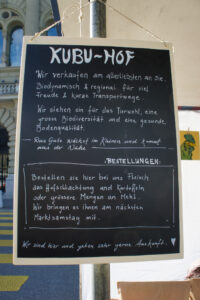 KUBU-HOF
Wir verkaufen am allerliebsten an Sie.
Biodynamisch & regional für viel
Freude & kurze Transportwege.
Wir stehen ein für das Tierwohl, eine
grosse Biodiversität und eine gesunde
Bodenqualität.
Das Gute wächst im Kleinen und kommt
aus der Nähe
BESTELLUNGEN:
Bestellen sie hier bei uns Fleisch
aus Hofschlachtung und Kartoffeln
oder grössere Mengen an Mehl.
Wir bringen es ihnen am nächsten
Marktsamstag mit.
Wir sind hier und geben sehr gerne Auskunft.